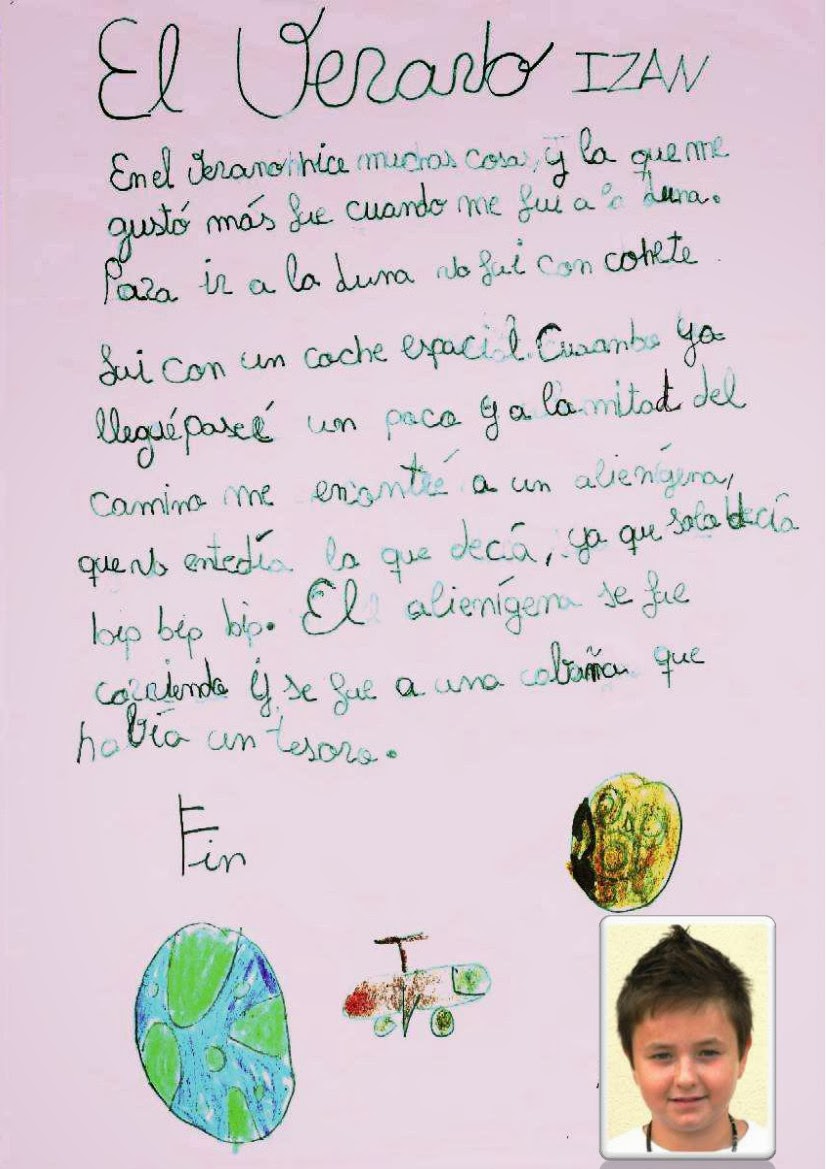 El Verano IZAN
En el Verano hice muchas cosas, y la que me
gustó más fue cuando me fui a la Luna.
Para ir a la Luna no fui con cohete
fui con un coche espacial. Cuando ya
llegué paseé un poco y a la mitad del
camino me encontré a un alienígena,
que no entedía lo que decía, ya que solo decía
bip bip bip. El alienígena se fue
corriendo y se fue a una cabaña que
había un tesoro.
Fin